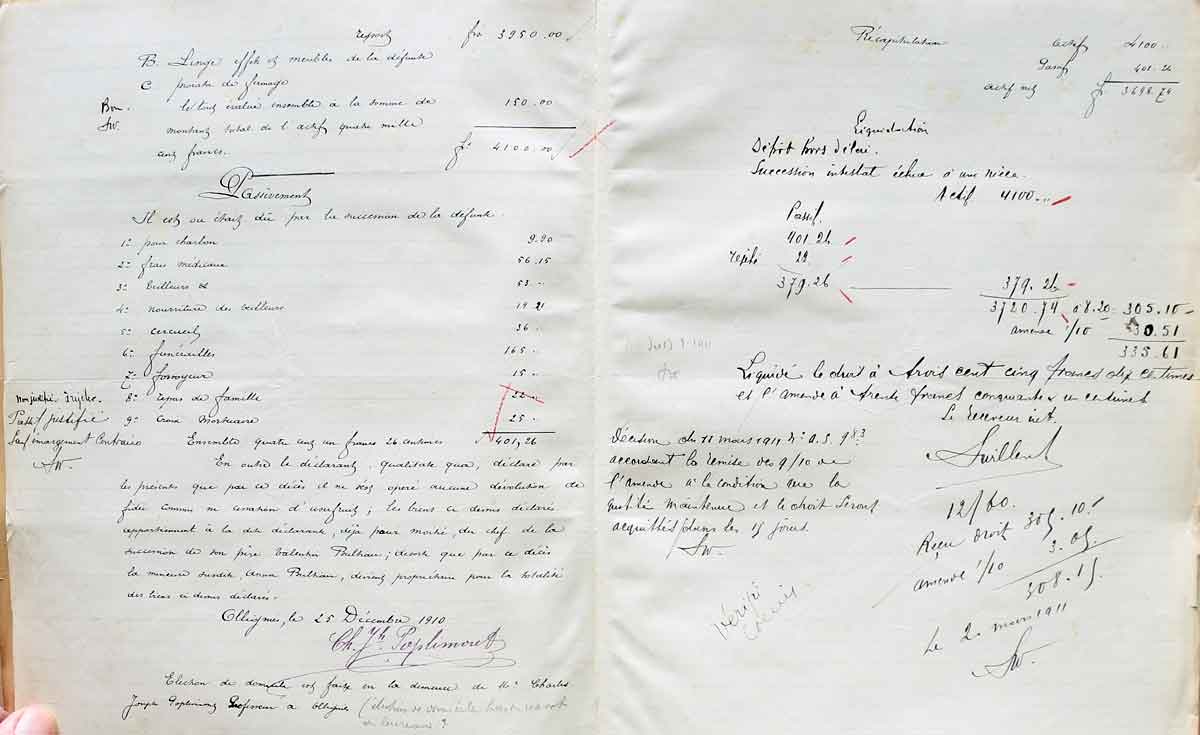 Report frs 3950.00
B. Linge effets et meubles de la défunte
C
Bon. le tout évalué ensemble à la somme de 150.00
montant total de l'actif quatre mille
cent francs. fr 4100.00
Passivement
Il est ou était dû par la succession de la défunte
1° pour charbon 9.90
2° frais médicaux 56.15
3° veilleurs 53..
4° nourriture des veilleurs 19.21
5° cercueil 36..
6° funérailles 165..
7° fossoyeur 15..
8° repas de famille 22..
Passif justifié 9° Croix Mortuaire 25..
Sauf émargement contraire Ensemble quatre cent un francs 26 centimes 401,26
En outre le déclarant, qualitate qua, déclare par
les présentes que par ce décès il ne s'est opéré aucune dévolution de
fidéi commis ni d'usufruit; les biens ci dessus déclarés
appartiennent à la dite déclarante, déjà pour moitié, du chef de la
succession de son père Valentin; desorte que par ce décès
la mineure susdite, Anna, devient propriétaire pour la totalité
des biens ci dessus déclarés.
Ollignies, le 25 Décembre 1910
Ch. Jh. Poplimont
Election de domicile est faite en la demeure de Mr Charles
Joseph Poplimont Professeur à Ollignies
Récapitulation actif 4100..
Passif 401.26
actif net fr 3698.74
Liquidation
Dépôt hors délai.
Succession intestat échue à une nièce.
Actif 4100..
Passif.
401.26
22.
379.26 379.26
3720.74 à 8.20 = 305.10
amende 1/10 30.51
335.61
Liquidé le droit à trois cent cinq francs dix centimes
et l'amende à trente francs cinquante et un centimes
Le Receveur int.
Décision du 11 mars 1911 n°
accordant la remise des 9/10 de
l'amende à la condition que la
maintenue et le droit seront
acquittés dans les 15 jours.
12/60.
Reçu droit 305.10
amende 1/10 3.05
308.15
Le 2 mars 1911
Vérifié